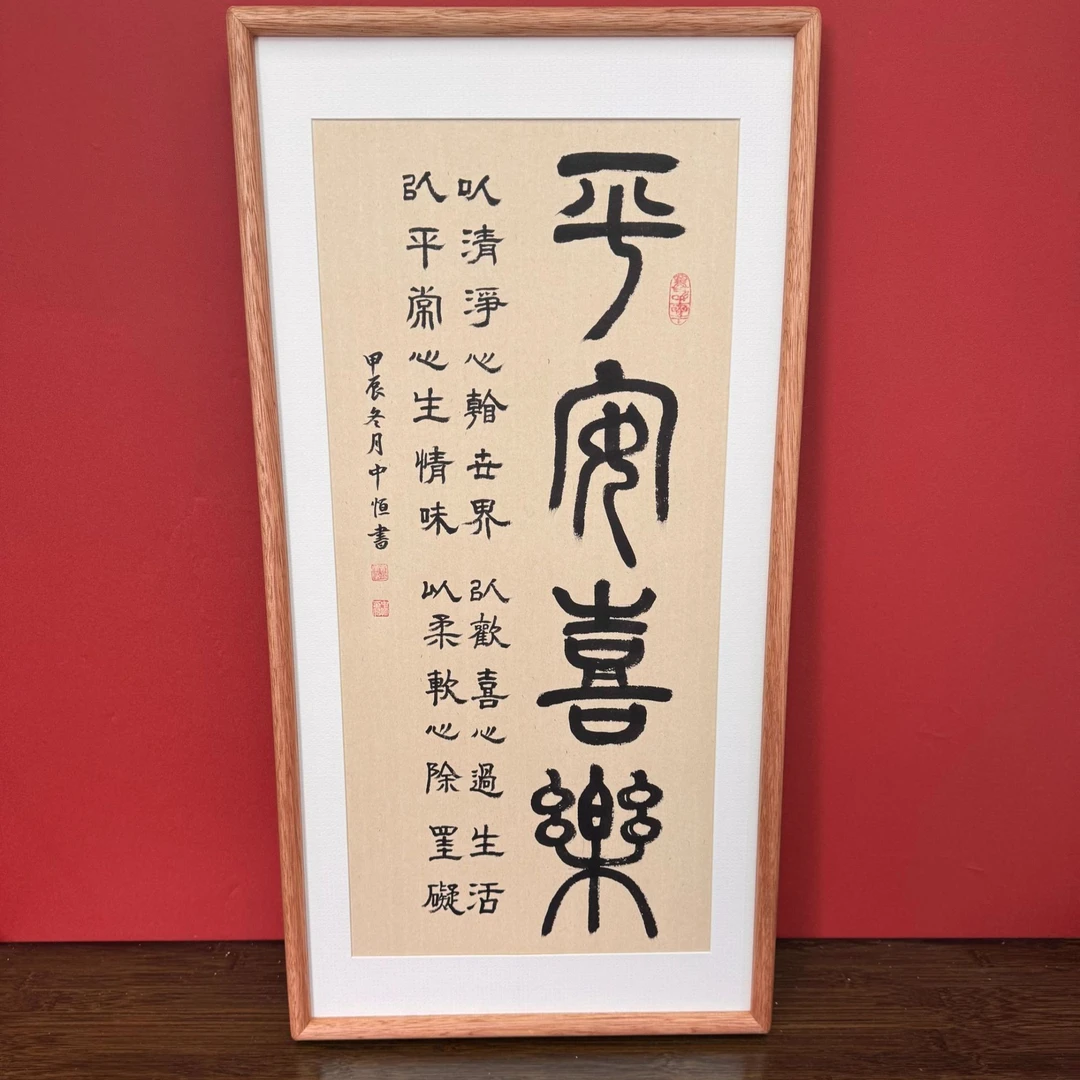 平安喜樂
以清淨心看世界 以歡喜心過生活
以平常心生情味 以柔軟心除罣礙
甲辰冬月中恒書